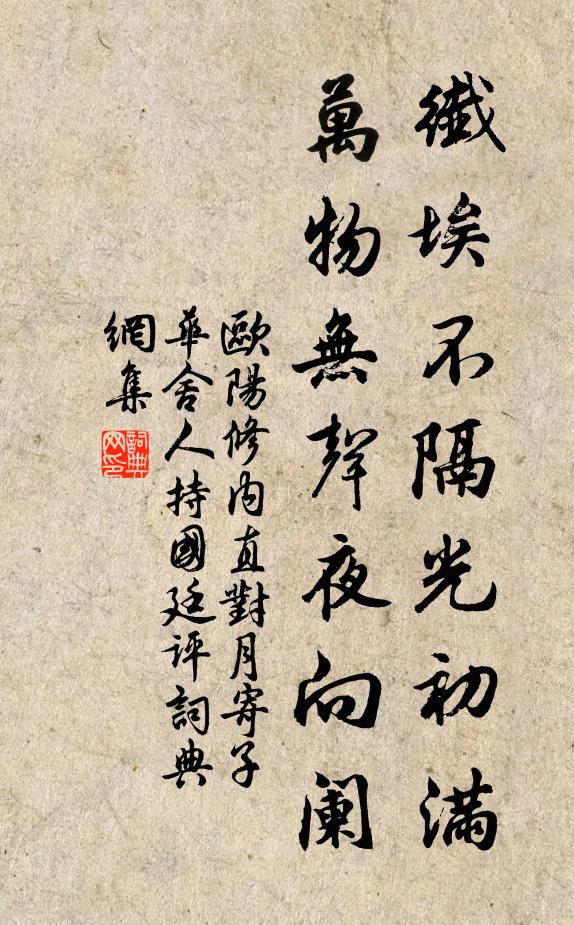 纖埃不隔光初滿
萬物無聲夜向闌
歐陽修內直對月寄子
華舍人持國廷評詞典
網集
詞典
网印